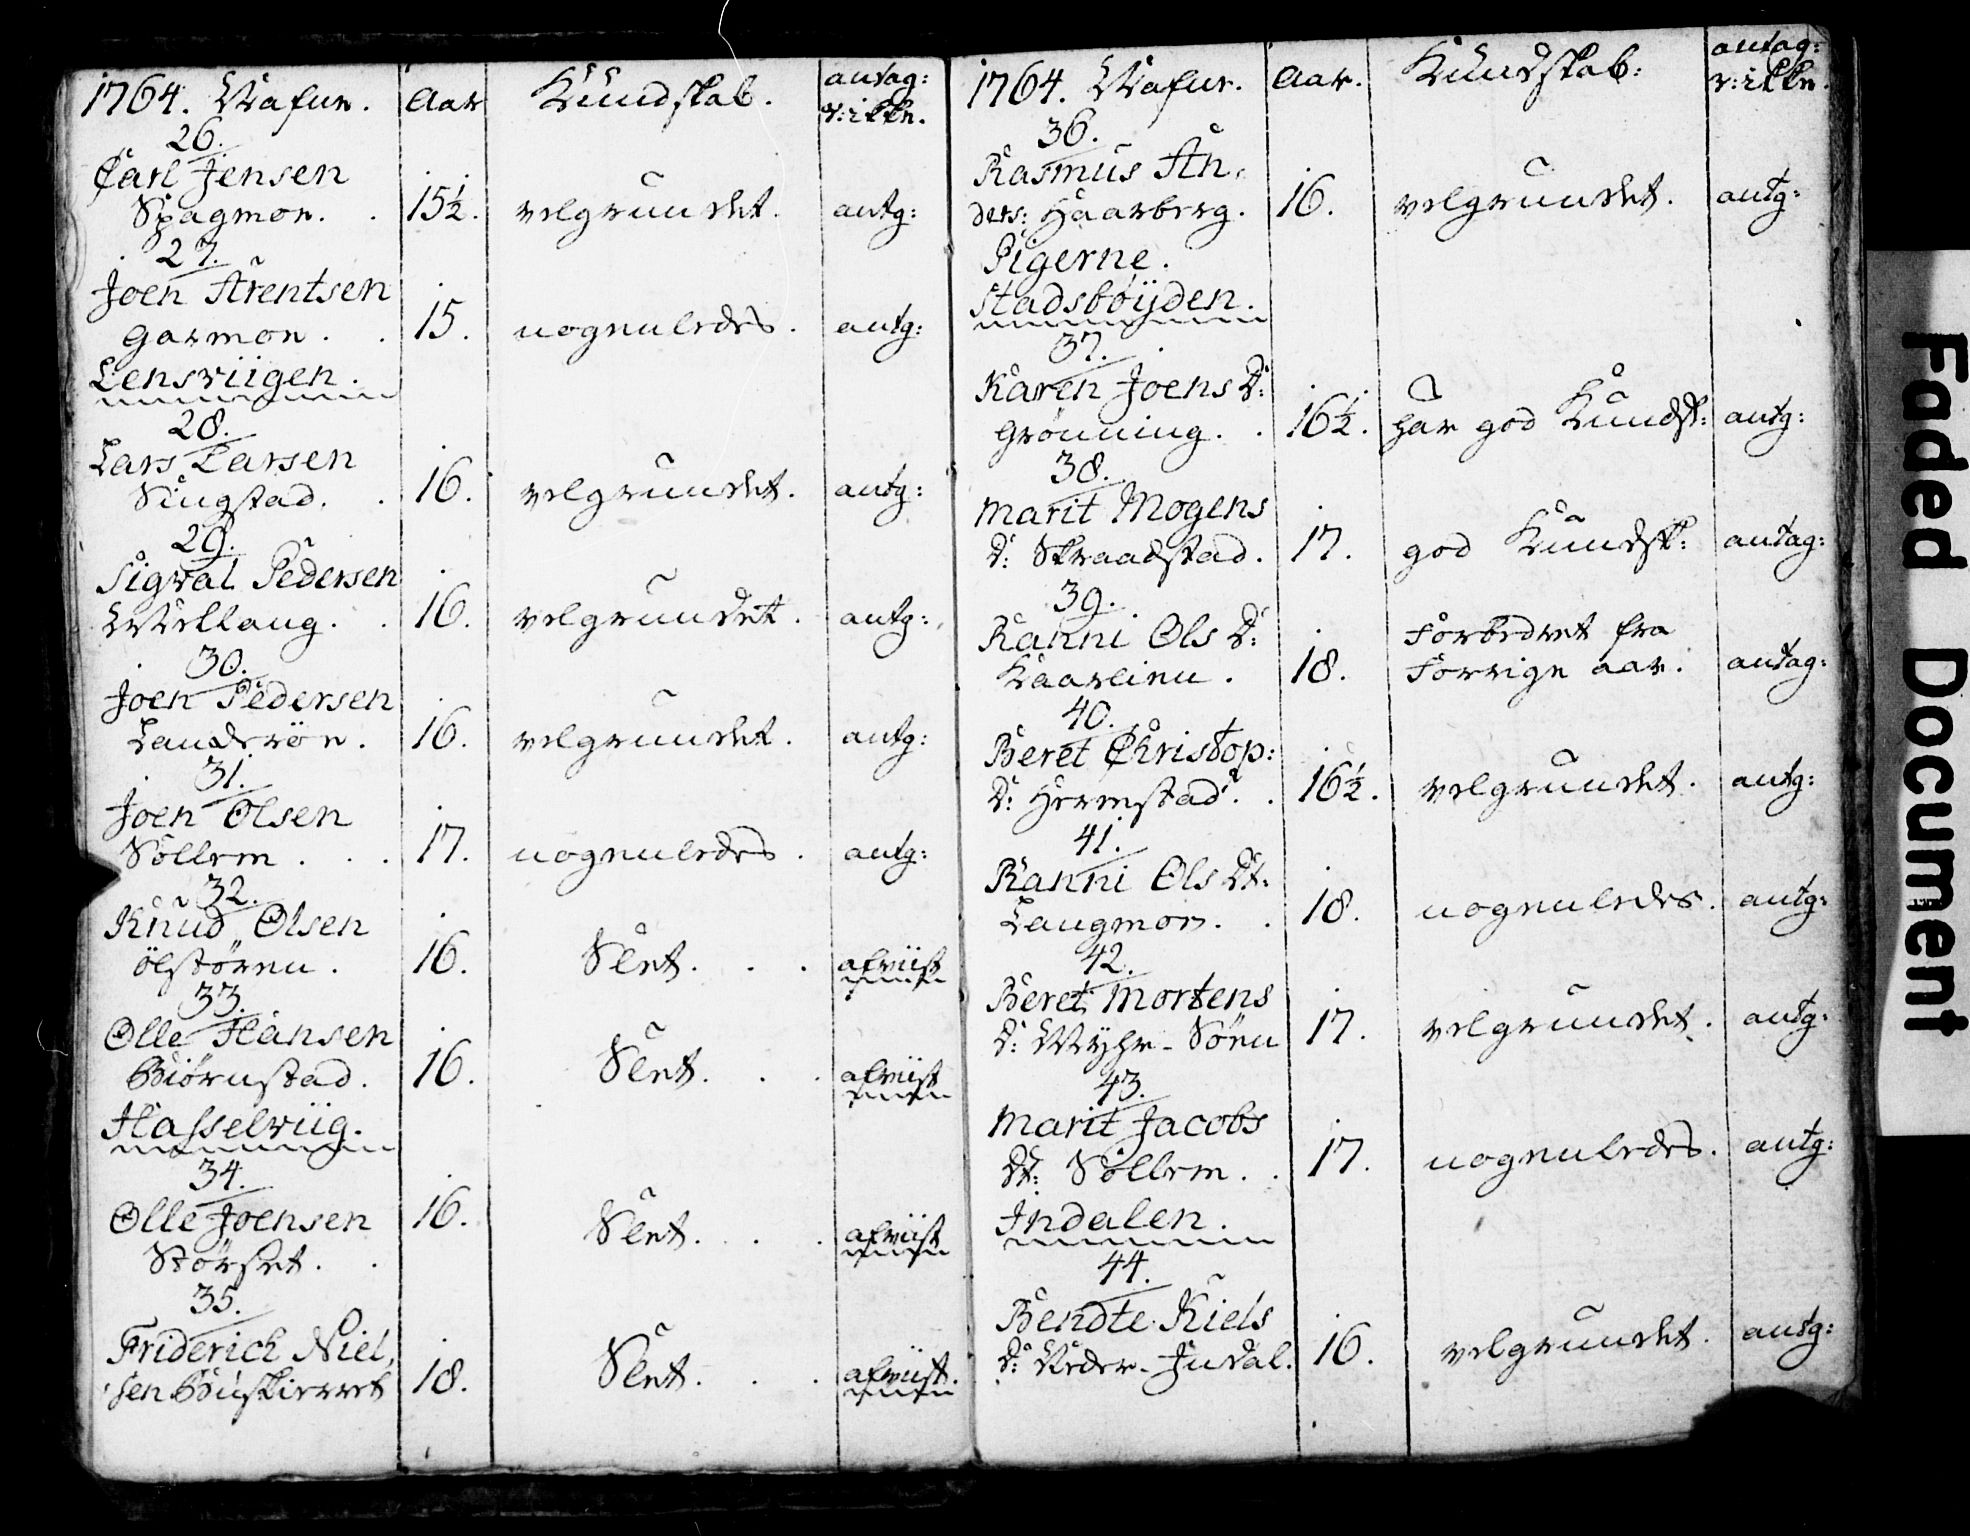 1764. Nafne. Aar Kundskab. antag:
r: ikke.
26.
Carl Jensen
Spagmoe. . 15½. velgrundet. antg:
27.
Joen Arentsen
Garmoe. . 15. nogenledes. antg:
Lensviigen.
28.
Lars Larsen
Singstad. . 16. velgrundet. antg:
29.
Sigval Pedersen
16. velgrundet. antg:
30.
Joen Pedersen
Landerøe. 16. velgrundet. antg:
31.
Joen Olsen
Søllem . . . 17. nogenledes. antg:
32.
Knud Olsen
Ølstøren. 16. Slet. . . afviist
33.
Olle Hansen
Biørnstad. 16. Slet. . . afviist
Hasselviig.
34.
Olle Joensen 16. Slet. . . afviist
Størset. .
35.
Friderich Niel,
sen Buskierret 18. Slet. . . afviist.
1764. Nafne. Aar. Kundskab: antag:
r: ikke.
36.
Rasmus An,
ders: Haarberg. 16. velgrundet. antg:
Pigerne.
Stadsbøyden.
37.
Karen Joens D:
Grønning. . 16½. har god Kundsk: antg:
38.
Marit Mogens
D: Skraadstad. 17. god Kundsk: antag:
39.
Ranni Ols D: Forbedret fra
Kaarlien. 18. Forrige aar. antag:
40.
Beret Christop:
D: Hermstad. . 16½. velgrundet. antg:
41.
Ranni Ols Dt:
Langmoe. . 18. nogenledes. antg:
42.
Beret Mortens
D: Myhr-Søen 17. velgrundet. antg:
43.
Marit Jacobs
Dt: Søllem. . 17. nogenledes. antg:
Indalen.
44.
Bendte Kiels
D: Neder-Indal. 16. velgrundet. antg:
Faded Document